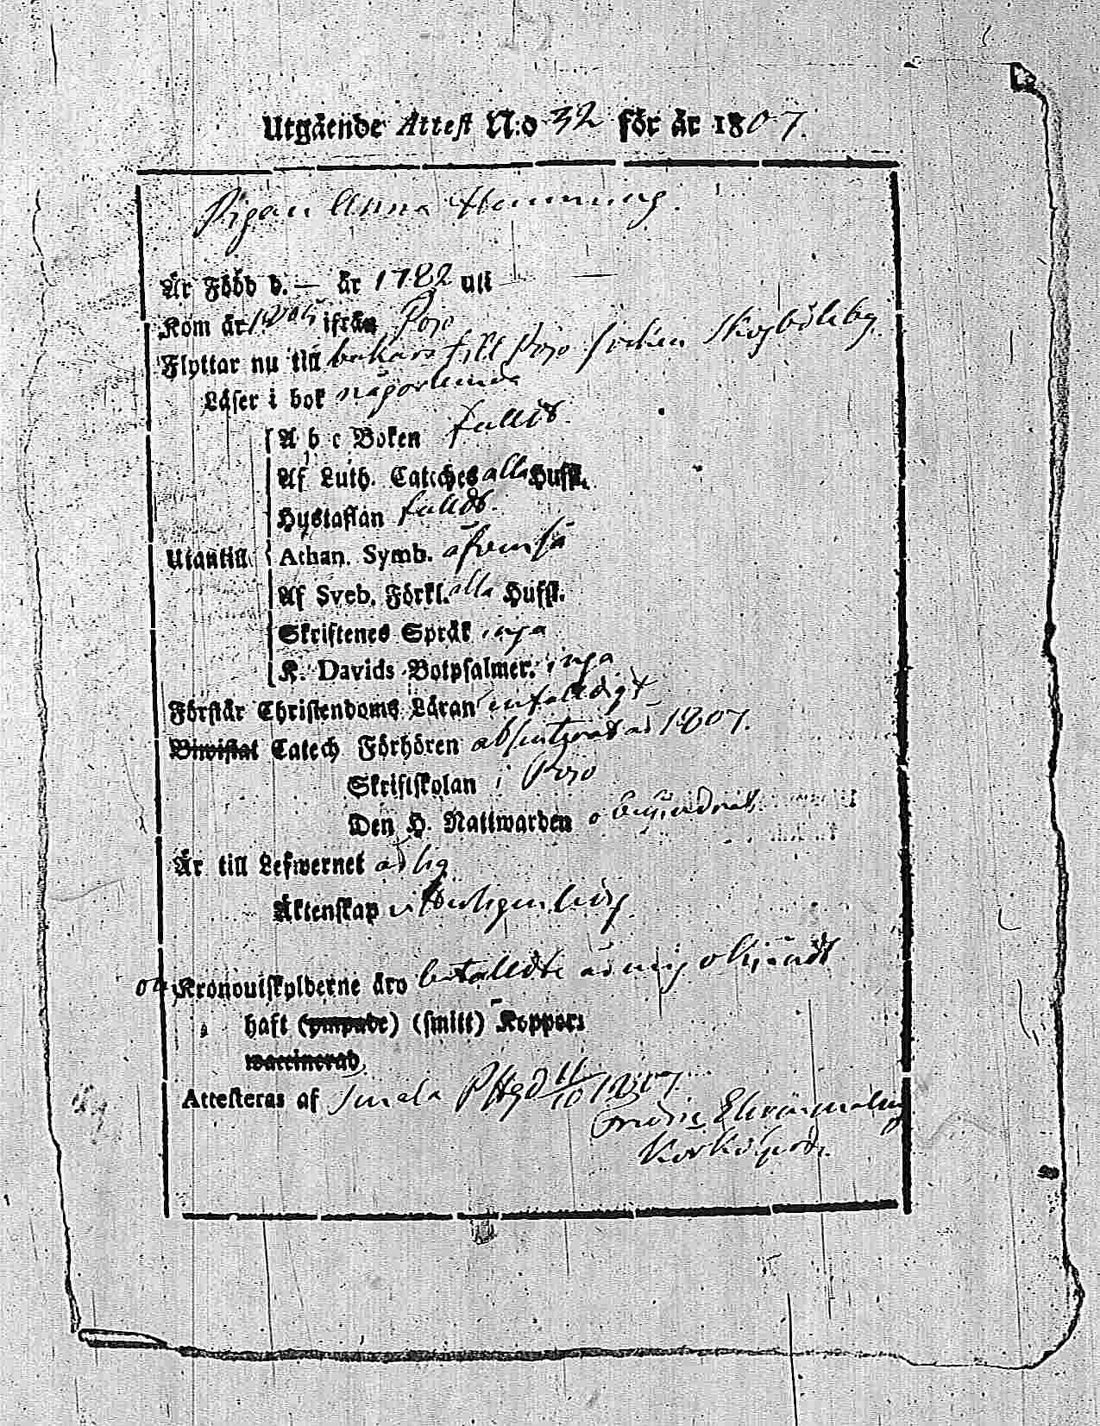 Utgående Attest N:o 32 för år 1807.
Pigan Anna Hemming.
Är Född d. — år 1782 uti
Kom år 1805 ifrån Pojo
Flyttar nu till bakars till Pojo Socken Skogböleby.
Läser i bok någorlunda
A b c Boken fullt.
Af Luth. Cateches alla Hufst.
Hustaflan fullt.
Utantill Athan. Symb. äfvenså
Af Sveb. Förkl. alla Hufst.
Skriftenes Språk inga
K. Davids Botpsalmer. inga
Förstår Christendoms Läran enfaldigt
Biwistat Catech Förhören absenterat år 1807.
Skriftskolan i Pojo
Den H. Nattwarden
Är till Lefwernet ärlig
Äktenskap
Kronoutskylderne äro betallde är mig okändt
haft (ympade) (smitt) Koppor:
waccinerad
Attesteras af 1807